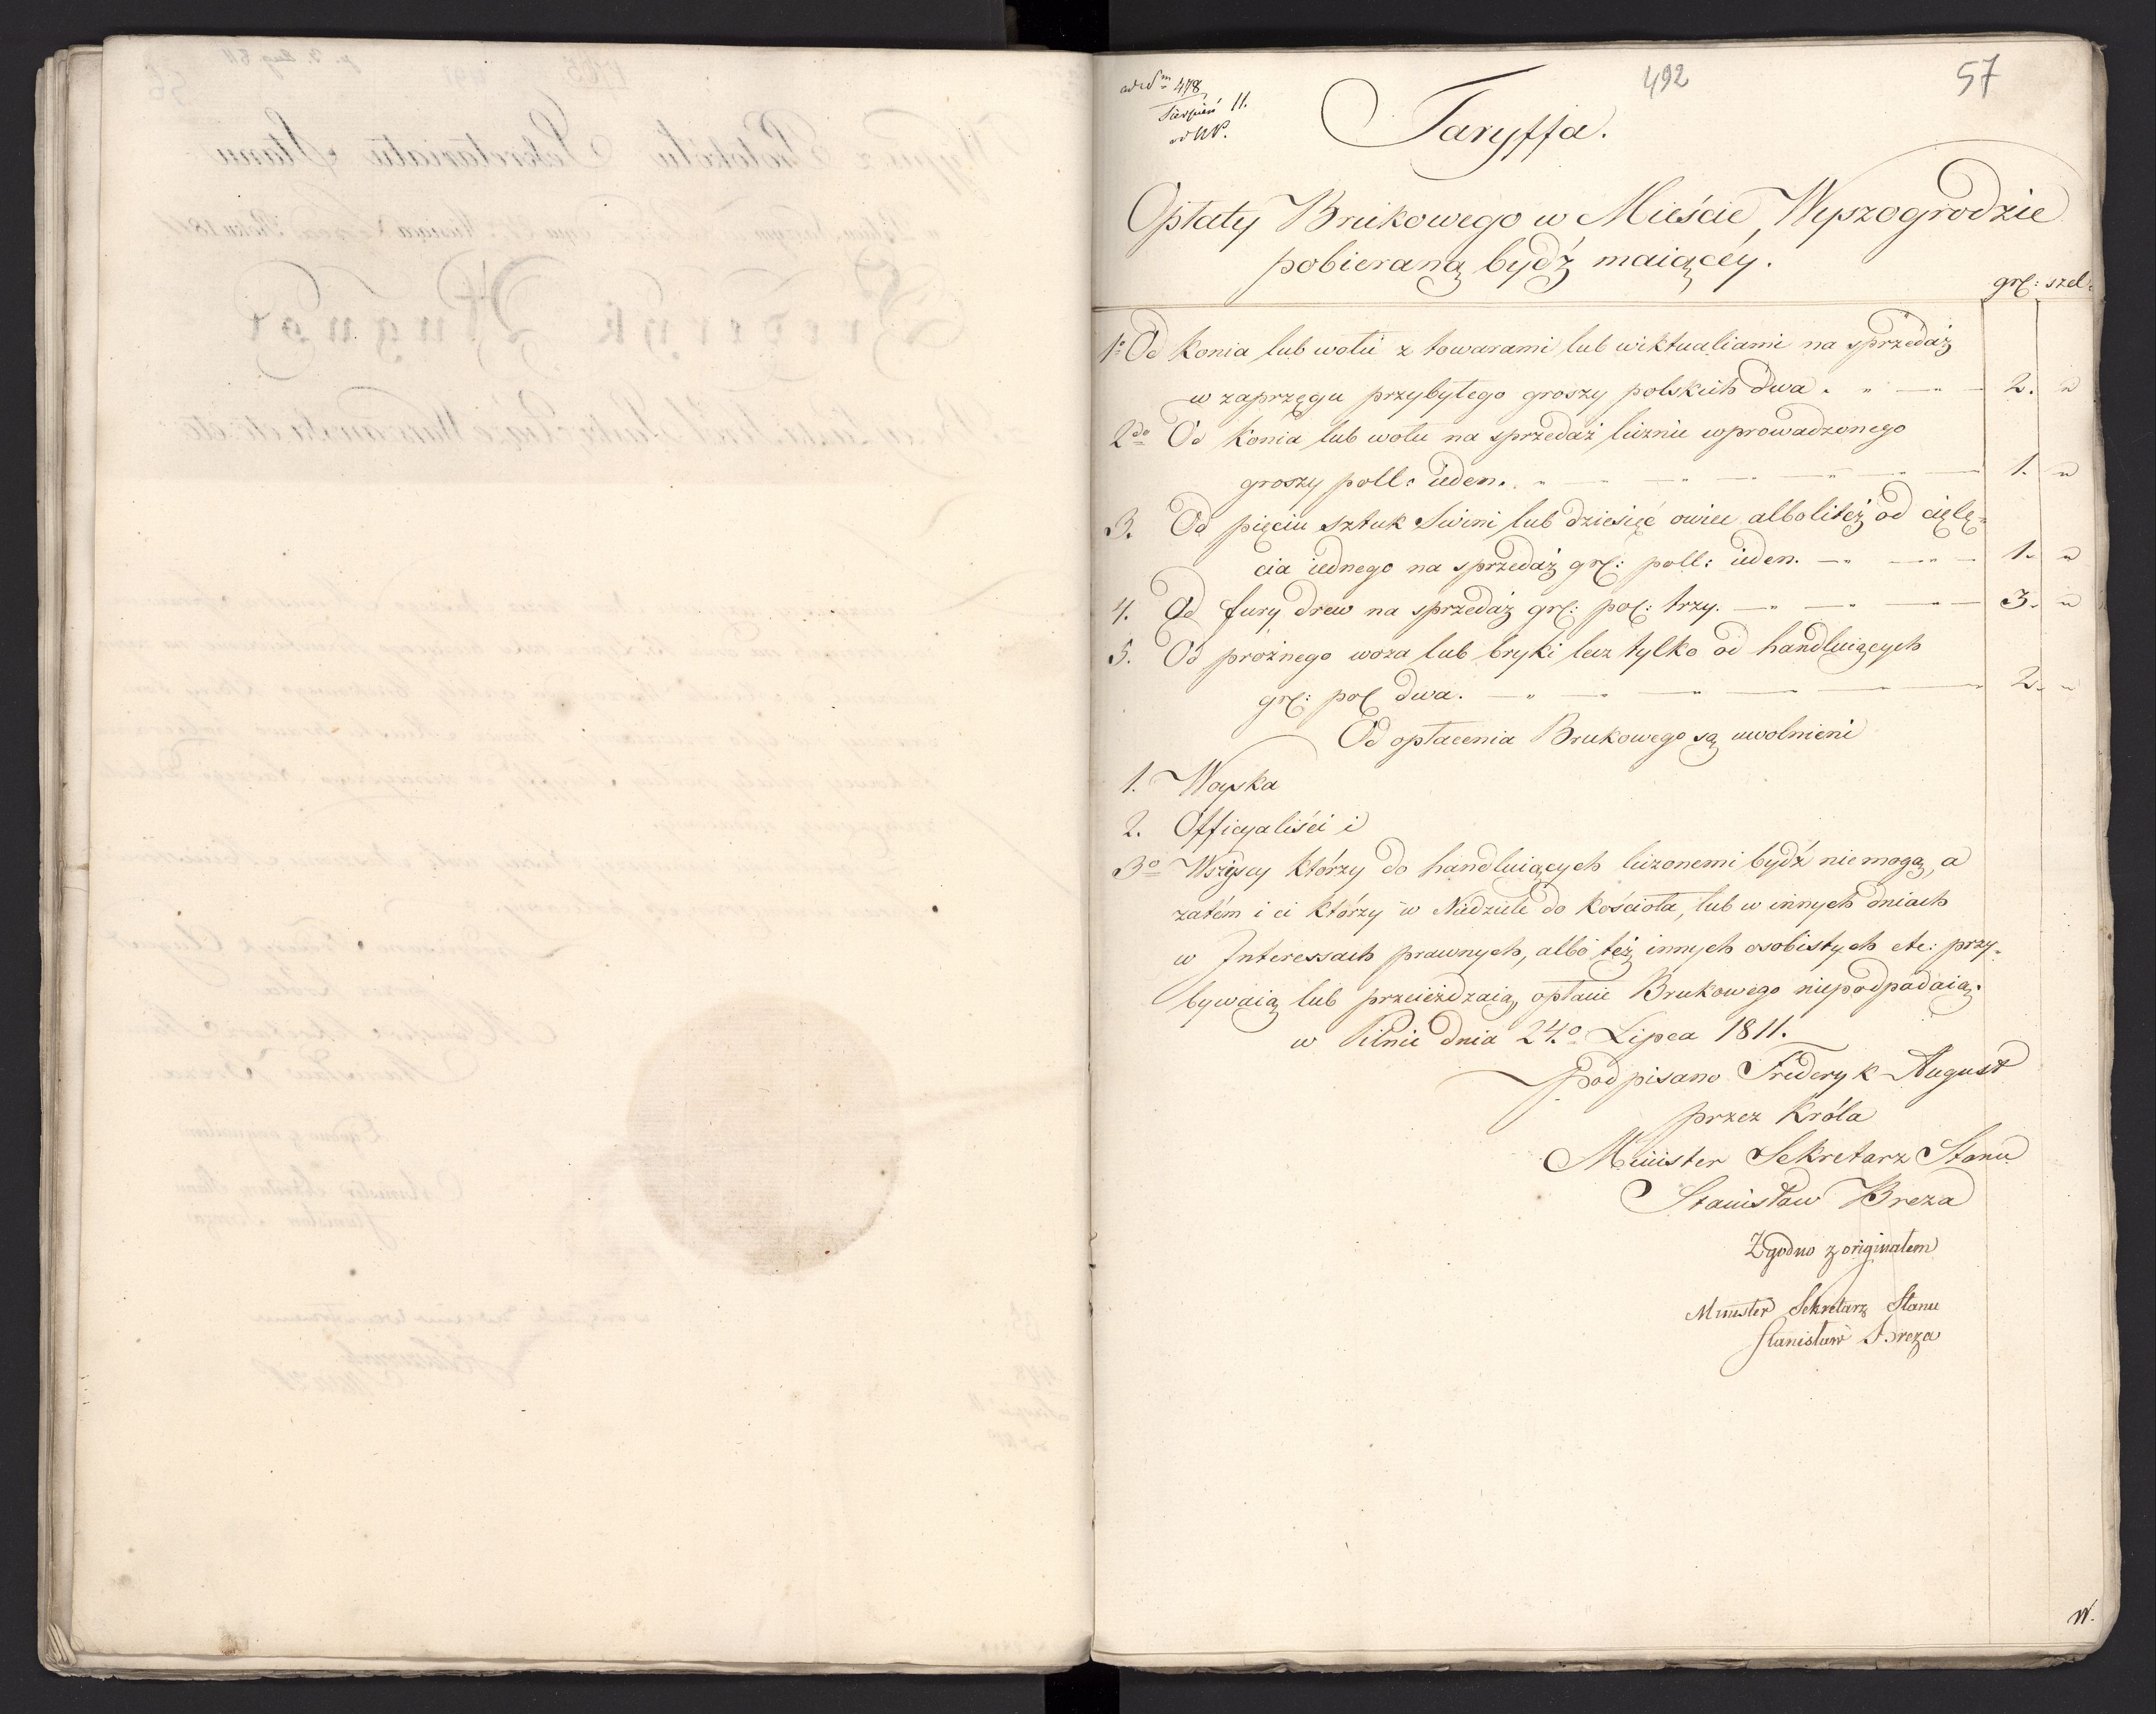 492
57
ad Nm 478
Sierpień 11.
Taryffa.
Opłaty Brukowego w Mieście Wyszogrodzie
pobieraną bydź maiącéy.
gr: szel:
1o Od konia lub wołu z towarami lub wiktualiami na sprzedaż
w zaprzęgu przybyłego groszy polskich dwa. 2. "
2do Od konia lub wołu na sprzedaż luźnie wprowadzonego
groszy poll: ieden. 1. "
3. Od pięciu sztuk Swini lub dziesięć owiec albo liteż od cielę-
cia iednego na sprzedaż gr: poll: ieden. 1. "
4. Od fury drew na sprzedaż gr: pol: trzy. 3. "
5. Od próżnego woza lub bryki lecz tylko od handluiących
gr: pol dwa. 2. "
Od opłacenia Brukowego są uwolnieni
1. Woyska
2. Officyaliści i
3o Wszyscy którzy do handluiących liczonemi bydź niemogą, a
zatém i ci którzy w Niedziele do kościoła, lub w innych dniach
w Interessach prawnych, albo też innych osobistych etc: przy-
bywaią lub przeieżdzaią, opłacie Brukowego niepodpadaią.
w Pilnie dnia 24o Lipca 1811.
Podpisano Frideryk August
przez Króla
Minister Sekretarz Stanu
Stanisław Breza
Zgodno z originałem
Minister Sekretarz Stanu
Stanisław Breza
W.